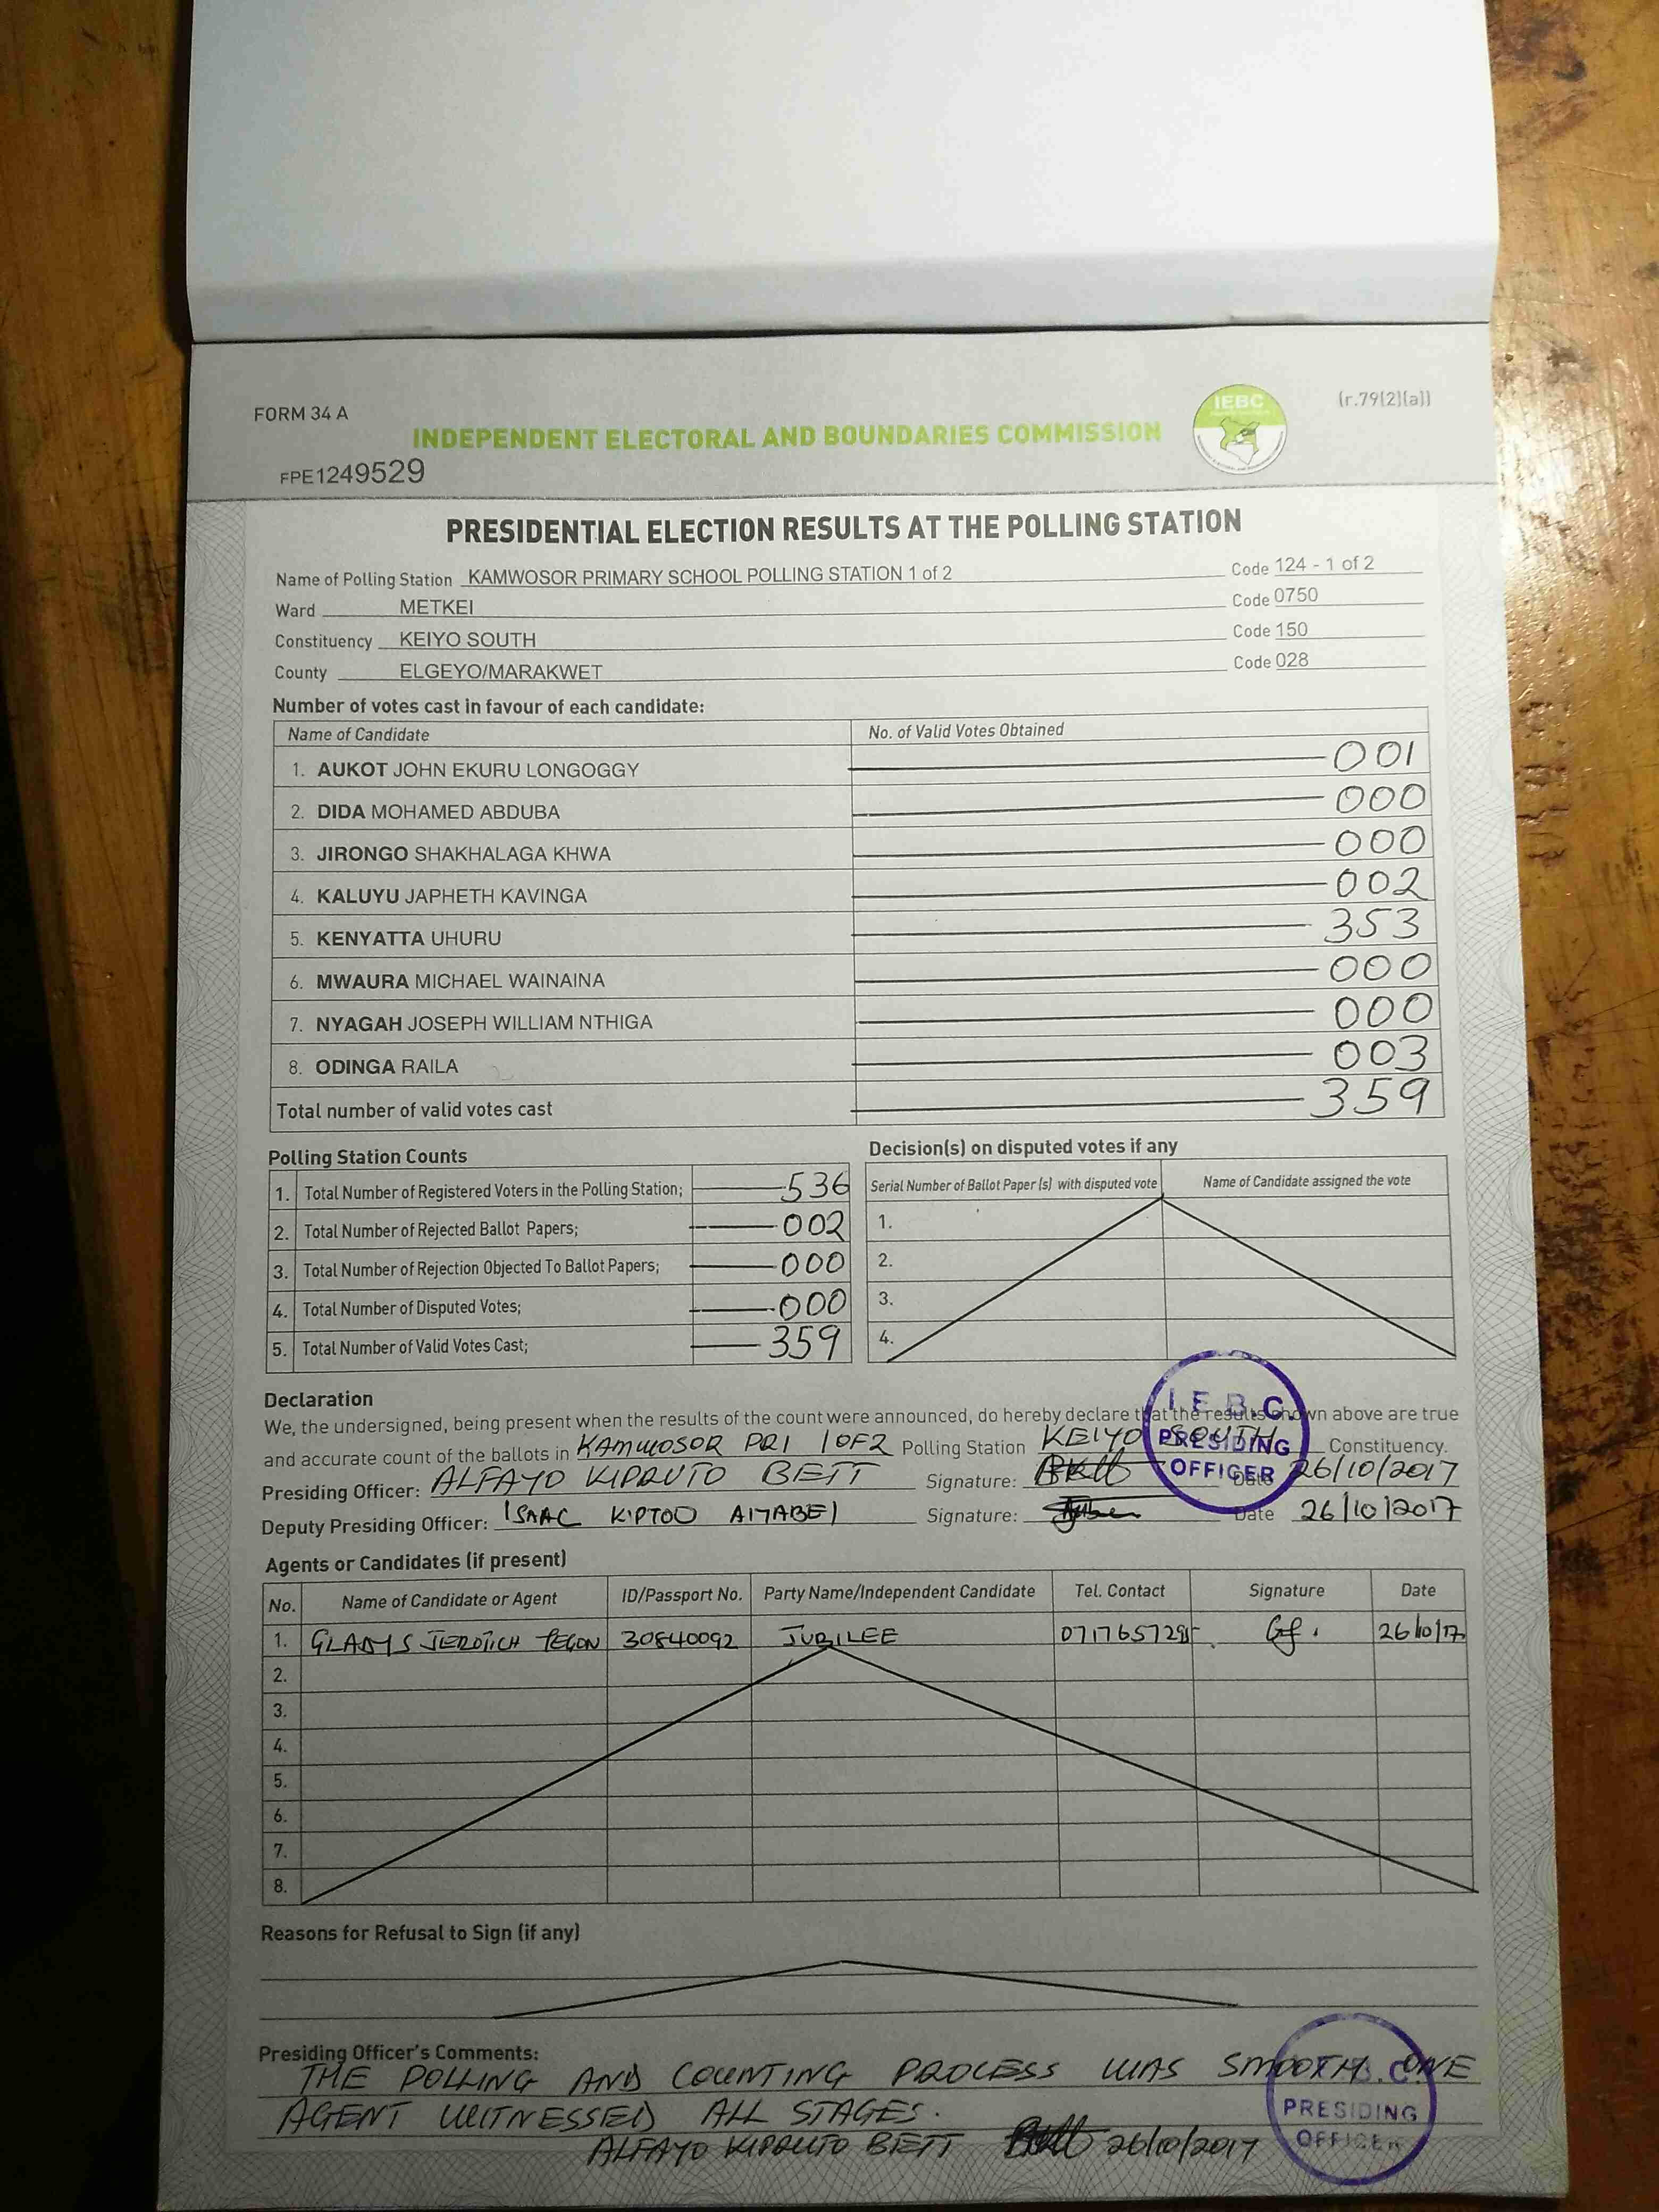 FORM 34 A
(r.79(2)(a))
IEBC
INDEPENDENT ELECTORAL AND BOUNDARIES COMMISSION
FPE1249529
PRESIDENTIAL ELECTION RESULTS AT THE POLLING STATION
Name of Polling Station KAMWOSOR PRIMARY SCHOOL POLLING STATION 1 of 2 Code 124 - 1 of 2
Ward METKEI Code 0750
Constituency KEIYO SOUTH Code 150
County ELGEYO/MARAKWET Code 028
Number of votes cast in favour of each candidate:
Name of Candidate No. of Valid Votes Obtained
1. AUKOT JOHN EKURU LONGOGGY 001
2. DIDA MOHAMED ABDUBA 000
3. JIRONGO SHAKHALAGA KHWA 000
4. KALUYU JAPHETH KAVINGA 002
5. KENYATTA UHURU 353
6. MWAURA MICHAEL WAINAINA 000
7. NYAGAH JOSEPH WILLIAM NTHIGA 000
8. ODINGA RAILA 003
Total number of valid votes cast 359
Polling Station Counts
1. Total Number of Registered Voters in the Polling Station; 536
2. Total Number of Rejected Ballot Papers; 002
3. Total Number of Rejection Objected To Ballot Papers; 000
4. Total Number of Disputed Votes; 000
5. Total Number of Valid Votes Cast; 359
Decision(s) on disputed votes if any
Serial Number of Ballot Paper (s) with disputed vote Name of Candidate assigned the vote
1.
2.
3.
4.
Declaration
We, the undersigned, being present when the results of the count were announced, do hereby declare that the results shown above are true
and accurate count of the ballots in KAMWOSOR PRI 1 OF 2 Polling Station KEIYO SOUTH Constituency.
Presiding Officer: ALFAYO KIPRUTO BETT Signature: Date 26/10/2017
Deputy Presiding Officer: ISAAC KIPTOO AIYABEI Signature: Date 26/10/2017
I.E.B.C.
PRESIDING
OFFICER
Agents or Candidates (if present)
No. Name of Candidate or Agent ID/Passport No. Party Name/Independent Candidate Tel. Contact Signature Date
1. GLADYS JEROTICH 30840092 JUBILEE 0717657295 26/10/17
2.
3.
4.
5.
6.
7.
8.
Reasons for Refusal to Sign (if any)
Presiding Officer's Comments:
THE POLLING AND COUNTING PROCESS WAS SMOOTH. ONE
AGENT WITNESSED ALL STAGES.
ALFAYO KIPRUTO BETT 26/10/2017
PRESIDING
OFFICER